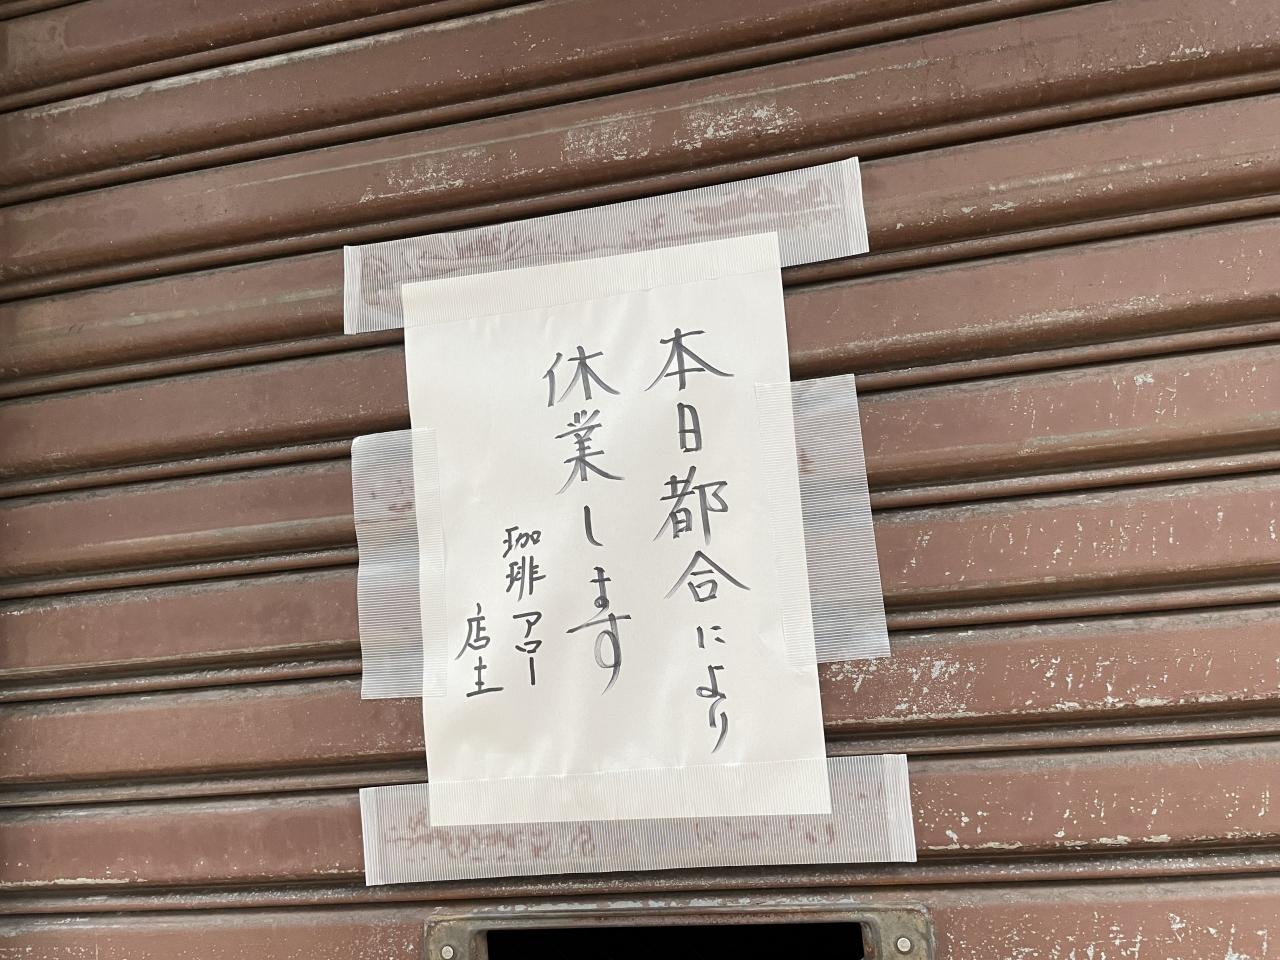 本日都合により
休業します
珈琲アロー
店主